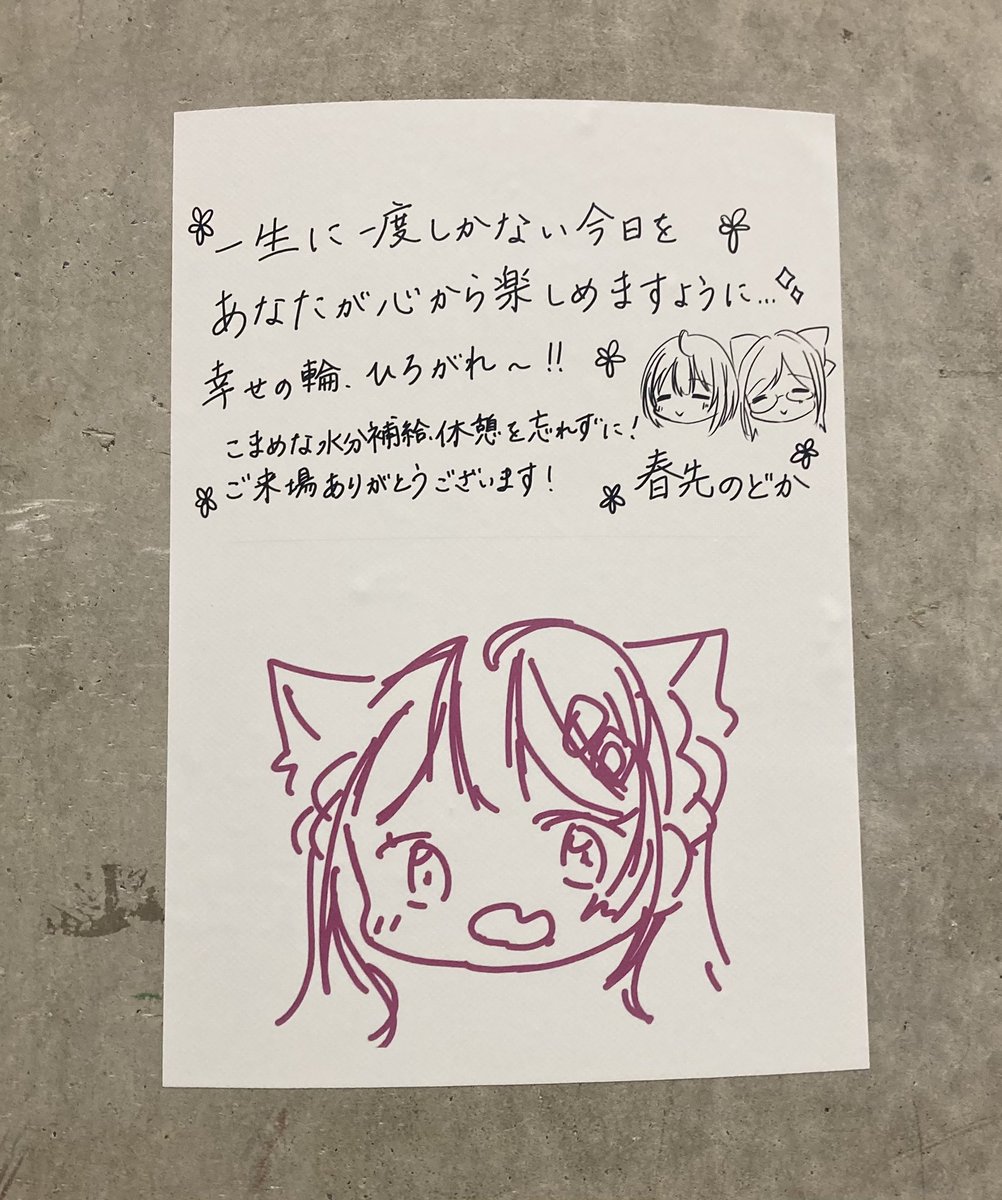 一生に一度しかない今日を
あなたが心から楽しめますように…
幸せの輪、ひろがれ～!!
こまめな水分補給、休憩を忘れずに!
ご来場ありがとうございます!
春先のどか